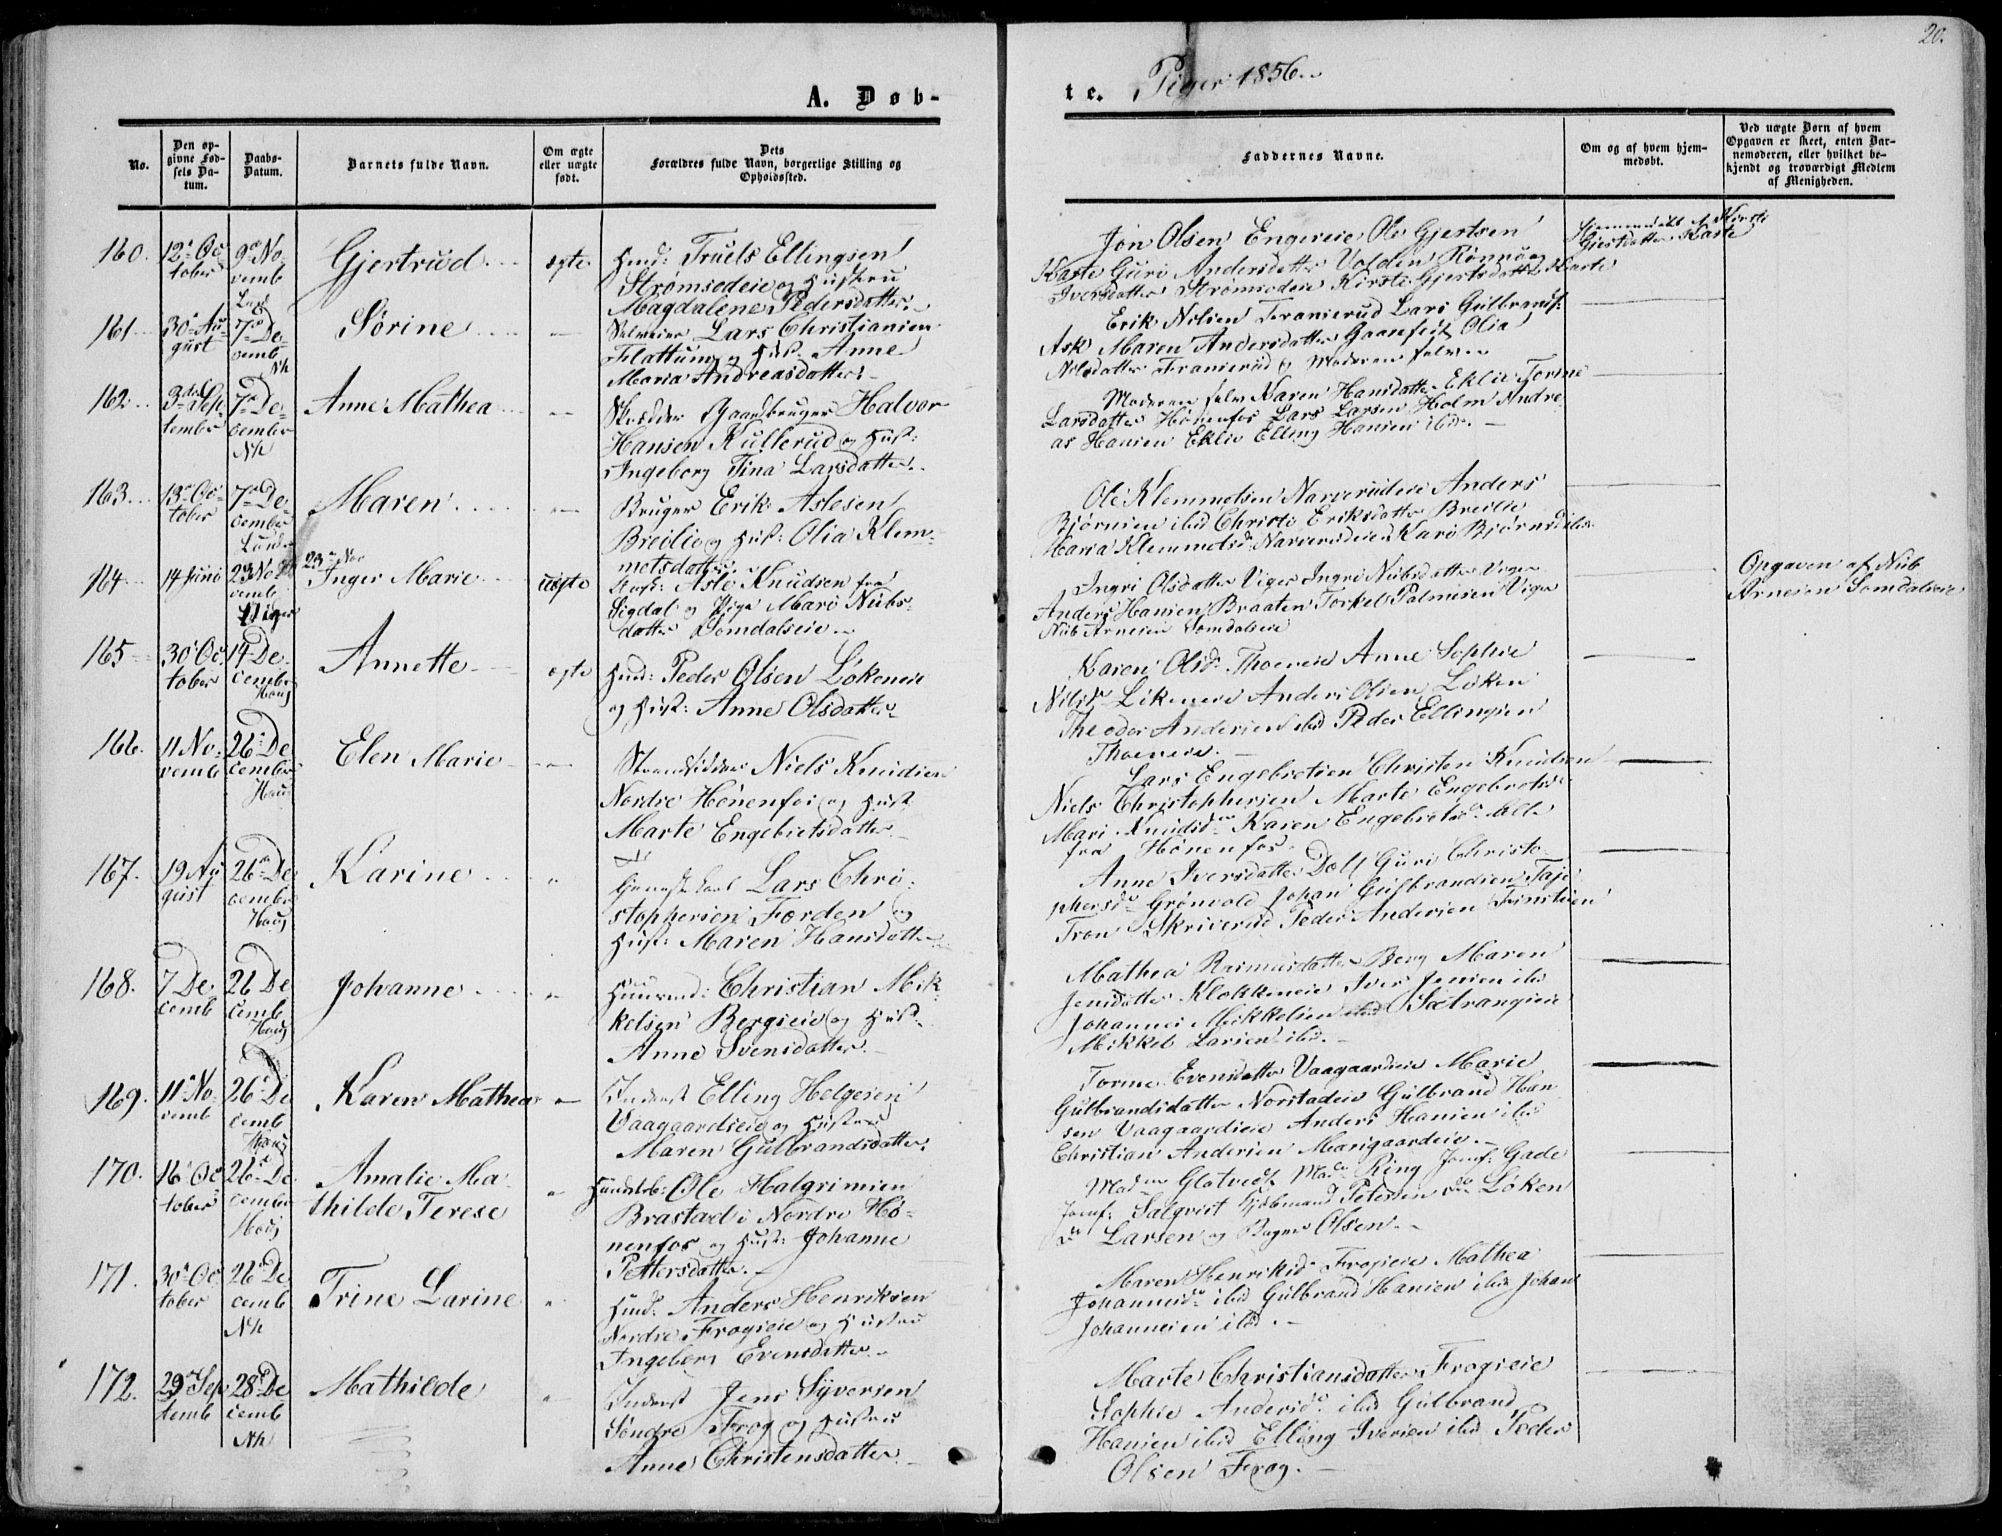 20.
A. Døb-
te. Piger 1856.
No.
Den op-
givne Fød-
sels Da-
tum.
Daabs-
Datum.
Barnets fulde Navn.
Om ægte
eller uægte
født.
Dets
Forældres fulde Navn, borgerlige Stilling og
Opholdssted.
Faddernes Navne.
Om og af hvem hjem-
medøbt.
Ved uægte Børn af hvem
Opgaven er skeet, enten Bar-
nemoderen, eller hvilket be-
kjendt og troværdigt Medlem
af Menigheden.
160. 12 Oc
tober 9 No
vemb
Gjertrud ægte
Huusmd: Truels Ellingsen
Strømsoeie og Hustru
Magdalene Pedersdatter.
Jon Olsen Engereie Ole Gjertsen
Karte Guri Andersdatter Volden Rønnaug
Iversdatter Strømsoeie Kirsti Gjertsdatter Karte
Hjemmedøbt af Kirsti
Gjertsdatter Karte
161 30 Au
gust 7 De
cemb
Nh
Sørine
Selveier Lars Christiansen
Flattum og Hust. Anne
Maria Andreasdatter.
Erik Nilsen Franserud Lars Gulbrands:
Ask Maren Andersdatter Olia
Nilsdatter Franserud og Moderen selv
162. 3 Sep
tember 7 De
cember
Nh
Anne Mathea
Skrædder Gaardbruger Halvor
Hansen Kullerud og Hust:
Ingeborg Tina Larsdatter.
Moderen selv Karen Hansdatter Eklie Torine
Larsdatter Hønefos Lars Larsen Holm Andre
as Hansen Eklie Elling Hansen ibid.
163. 13 Oc
tober 7 De
cember
Lunder
Maren
Bruger Erik Aslesen
Breilie og Hust: Olia Klem-
metsdatter
Ole Klemmetsen Narverudeie Anders
Bjørnsen ibid Christi Eriksdatter Breilie
Maria Klemmetsd. Narverudeie Kari Bjørnsd ibid
164 14 Juni 23 No
vemb
Viger
23 Nov
Inger Marie uægte
Asle Knudsen fra
Sigdal og Pige Mari Nubs-
datter Somdalseie
Ingri Olsdatter Viger Ingri Nubsdatter Viger
Anders Hansen Braaten Torkel Palmesen Viger
Nub Arnesen Somdalseie
Opgaven af Nub
Arnesen Somdalseie
165 30 Oc
tober 14 De
cember
Haug
Annette ægte
Huusmd: Peder Olsen Løkeneie
og Hust: Anne Olsdatter
Karen Olsd. Thoeneie Anne Sophie
Nilsd. Løkeneie Anders Olsen Løken
Theodor Andersen ibid Peder Ellingsen
Thoeneie.
166. 11 No
vemb 26 De
cember
Haug
Elen Marie
Strandsidder Niels Knudsen
Nordre Hønenfos og Hust
Marte Engebretsdatter
Lars Engebretsen Christen Knudsen
Niels Christophersen Marte Engebretsd.
Mari Knudsd. Karen Engebretsd. alle
fra Hønenfos.
167. 19 Au
gust 26 De
cember
Haug
Karine
Lars Chri-
stophersen Forden og
Hust: Maren Hansdatter
Anne Iversdatter Doll Guri Christo-
phersd. Grønvold Johan Gulbrandsen
Tron Skriverud Peder Andersen
168. 7 De
cemb 26 De
cemb
Haug
Johanne
Huusmd: Christian Mik-
kelsen Bergseie og Hust.
Anne Svensdatter.
Mathea Rasmusdatter Berg Maren
Jensdatter Klokkeneie Iver Jensen ibid
Johannes Mikkelsen Sætrangeie
Mikkel Larsen ibid.
169. 11 No
vemb 26 De
cemb
Haug
Karen Mathea
Inderst Elling Helgesen
Vaagaardseie og Hustru
Maren Gulbrandsdatter.
Torine Evensdatter Vaagaardseie Marie
Gulbrandsdatter Norstadeie Gulbrand Han-
sen Vaagaardseie Anders Hansen ibid
Christian Andersen Moesgaardeie.
170. 16 Oc
tober 26 De
cember
Haug
Amalie Ma-
thilde Terese
Ole Halgrimsen
Brastad i Nordre Hø-
nenfos og Hust: Johanne
Pettersdatter.
Madm Glatved Mad Ring Jomf: Gade
Jomf: Salqvist Kjøbmand Petersen Løken
Larsen og Bager Olsen.
171. 30 Oc
tober 26 De
cemb
Nh
Trine Larine
Huusmd: Anders Henriksen
Nordre Frogseie og Hustru
Ingeborg Evensdatter
Maren Henriksd. Frogseie Mathea
Johannesd. ibid Gulbrand Hansen ibid Johan
Johannesen ibid.
172. 29 Sep
temb 28 De
cemb
Nh
Mathilde
Inderst Jens Syversen
Søndre Frog og Hustru
Anne Christensdatter
Marte Christiansdatter Frogseie
Sophie Andersd. ibid Gulbrand
Hansen ibid Elling Iversen ibid Peder
Olsen Frog.